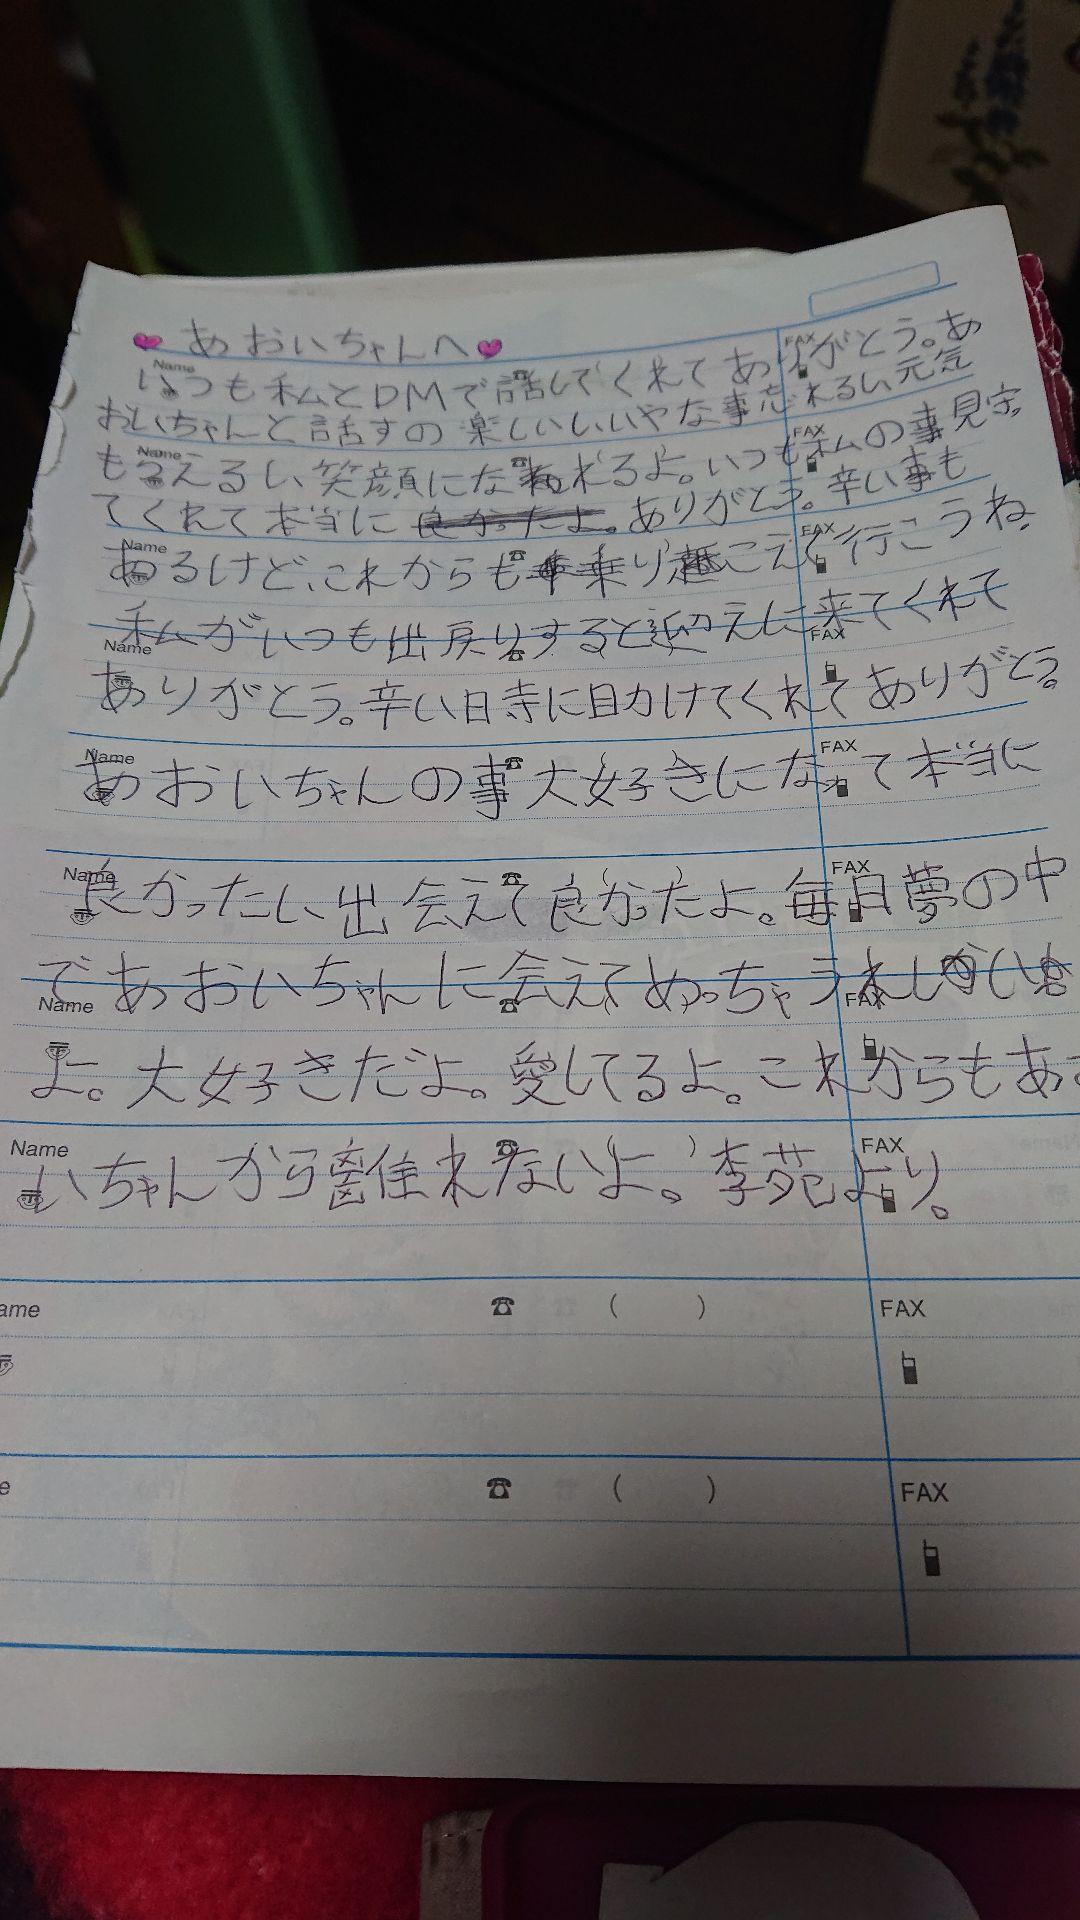 あおいちゃんへ
Name FAX
いつも私とDMで話してくれてありがとう。あ
おいちゃんと話すの楽しいしいやな事忘れるし元気
Name FAX
もらえるし、笑顔になれるよ。いつも私の事見守っ
てくれて本当に良かったよ。ありがとう。辛い事も
Name FAX
あるけど、これからも乗り越こえて行こうね。
私がいつも出戻りすると迎えに来てくれて
Name FAX
ありがとう。辛い時に助けてくれてありがとう。
Name FAX
あおいちゃんの事大好きになって本当に
Name FAX
良かったし、出会えて良かったよ。毎日夢の中
であおいちゃんに会えてめっちゃうれしい
Name FAX
よ。大好きだよ。愛してるよ。これからもあお
Name FAX
いちゃんから離れないよ。李苑より。
ame ( ) FAX
e ( ) FAX